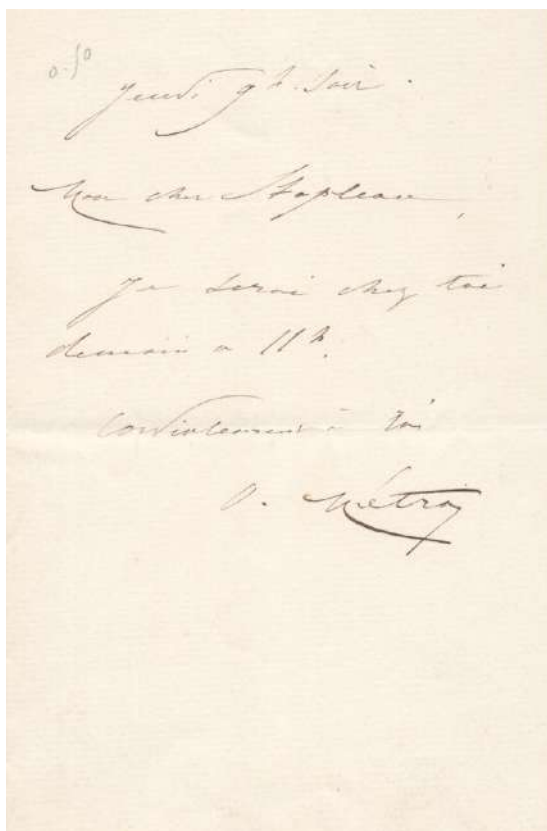 0.50
Jeudi 9h. Soir.
Mon cher Stapleaux,
Je serai chez toi
demain a 11h.
Cordialement à toi
O. Métra